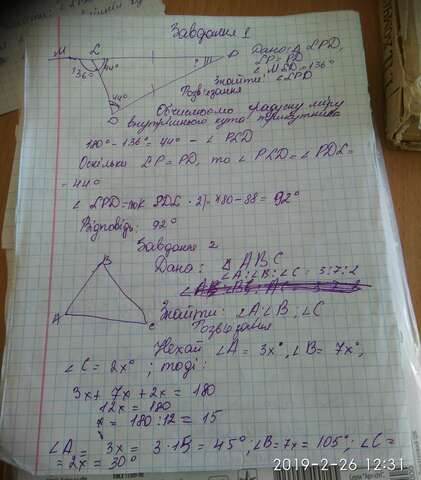 Завдання 1
M L 136° 44° D 44° P
Дано: Δ LPD,
LP = PD
∠ MLD = 136°
Знайти:
∠ LPD
Розв'язання
Обчислюємо градусну міру
внутрішнього кута трикутника
180° - 136° = 44° - ∠ PLD
Оскільки LP = PD, то ∠ PLD = ∠ PDL =
= 44°
∠ LPD = 180 - 88 = 92°
Відповідь: 92°
Завдання 2
B
A
C
Дано: Δ ABC
∠A : ∠B : ∠C = 3:7:2
Знайти: ∠A; ∠B; ∠C
Розвязання
Нехай ∠A = 3x°, ∠B = 7x°,
∠C = 2x° ; тоді:
3x + 7x + 2x = 180
12x = 180
x = 180 : 12 = 15
∠A = 3x = 3 · 15 = 45°, ∠B = 7x = 105°; ∠C =
= 2x = 30°
2019-2-26 12:31